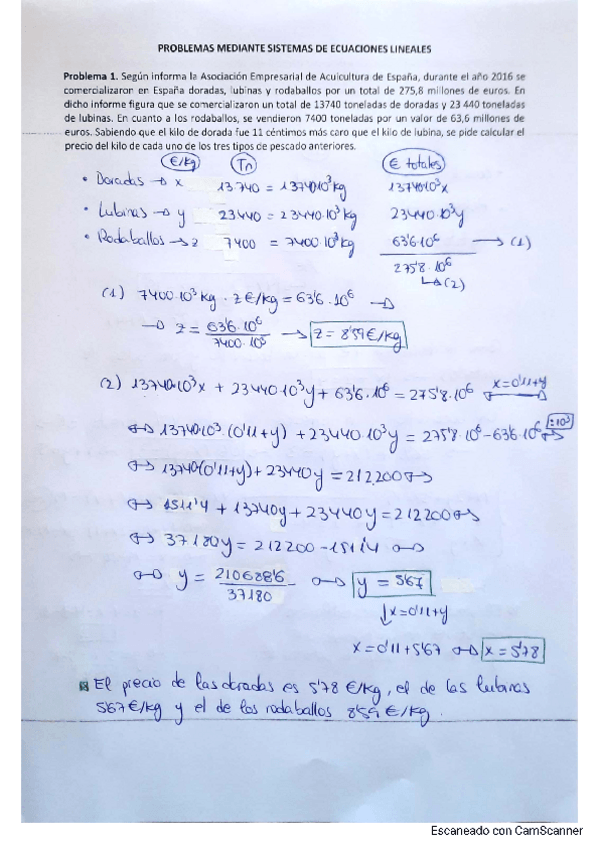 PROBLEMAS MEDIANTE SISTEMAS DE ECUACIONES LINEALES
Problema 1. Según informa la Asociación Empresarial de Acuicultura de España, durante el año 2016 se
comercializaron en España doradas, lubinas y rodaballos por un total de 275,8 millones de euros. En
dicho informe figura que se comercializaron un total de 13740 toneladas de doradas y 23 440 toneladas
de lubinas. En cuanto a los rodaballos, se vendieron 7400 toneladas por un valor de 63,6 millones de
euros. Sabiendo que el kilo de dorada fue 11 céntimos más caro que el kilo de lubina, se pide calcular el
precio del kilo de cada uno de los tres tipos de pescado anteriores.
€/kg Tn € totales
• Doradas → x 13740 = 13740·10³ kg 13740·10³x
• Lubinas → y 23440 = 23440·10³ kg 23440·10³y
• Rodaballos → z 7400 = 7400·10³ kg 63'6·10⁶ → (1)
275'8·10⁶
↳ (2)
(1) 7400·10³ kg · z €/kg = 63'6·10⁶ →
→ z = 63'6·10⁶ / 7400·10³ → z = 8'59 €/kg
(2) 13740·10³x + 23440·10³y + 63'6·10⁶ = 275'8·10⁶ x=0'11+y
↔ 13740·10³·(0'11+y) + 23440·10³y = 275'8·10⁶ - 63'6·10⁶ :10³ ↔
↔ 13740(0'11+y) + 23440y = 212200 ↔
↔ 1511'4 + 13740y + 23440y = 212200 ↔
↔ 37180y = 212200 - 1511'4 ↔
↔ y = 210688'6 / 37180 ↔ y = 5'67
↓ x=0'11+y
x = 0'11 + 5'67 ↔ x = 5'78
El precio de las doradas es 5'78 €/kg, el de las lubinas
5'67 €/kg y el de los rodaballos 8'59 €/kg.
Escaneado con CamScanner